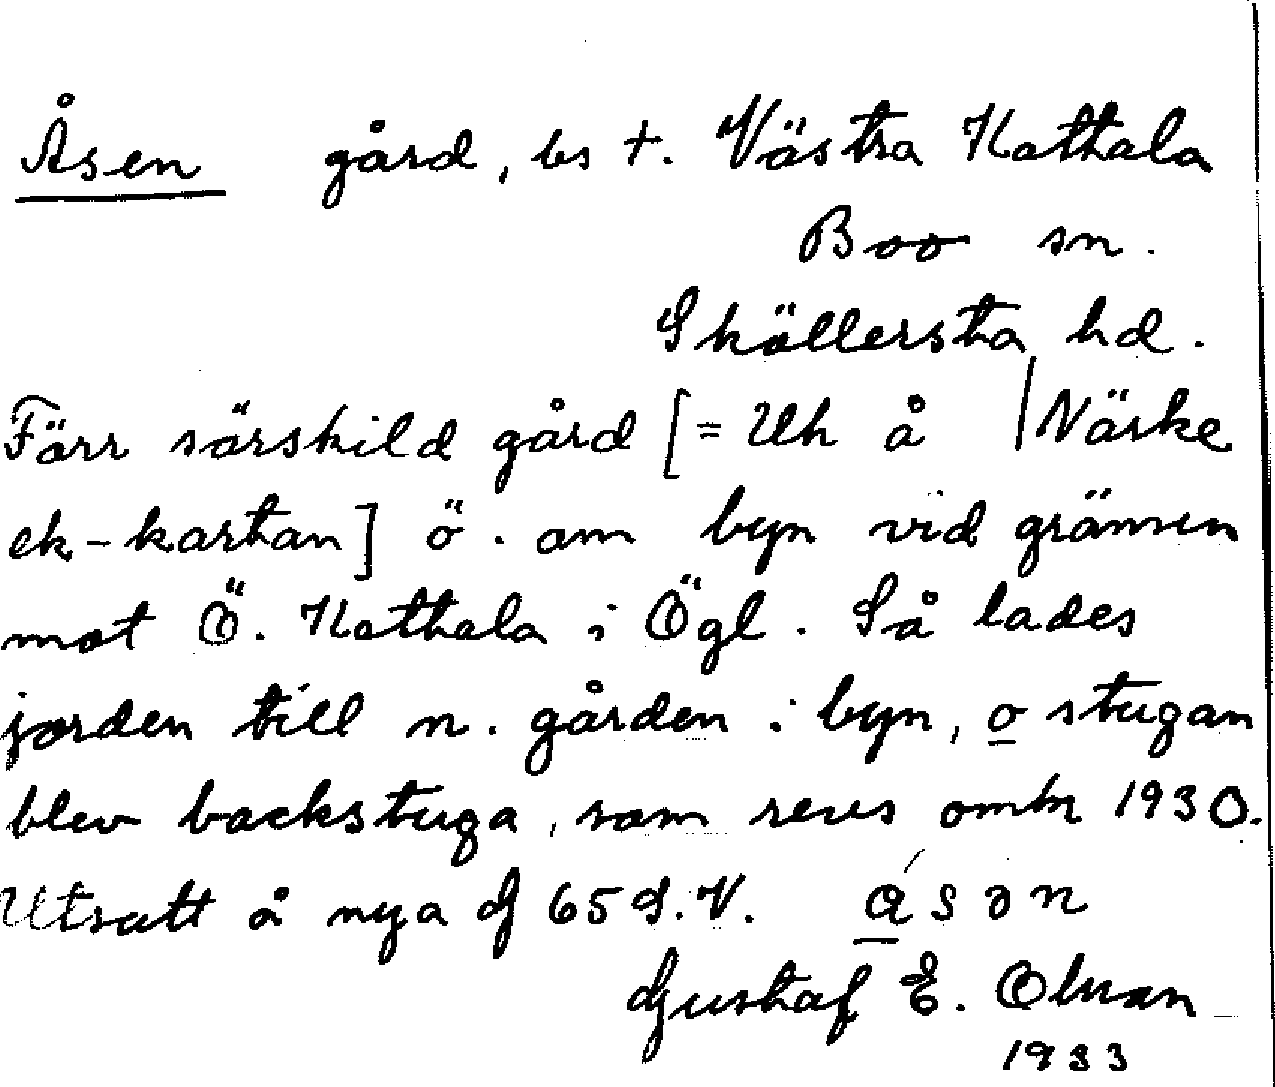 Åsen gård, bs †. Västra Kathala
Boo sn.
Sköllersta hd.
Förr särskild gård [= Uh å | Närke
ek-kartan] ö. om byn vid gränsen
mot Ö. Kathala i Ögl. Så lades
jorden till n. gården i byn, o stugan
blev backstuga, som revs omkr 1930.
Utsatt å nya G 65 S.V. åsən
Gustaf E. Olsson
1933